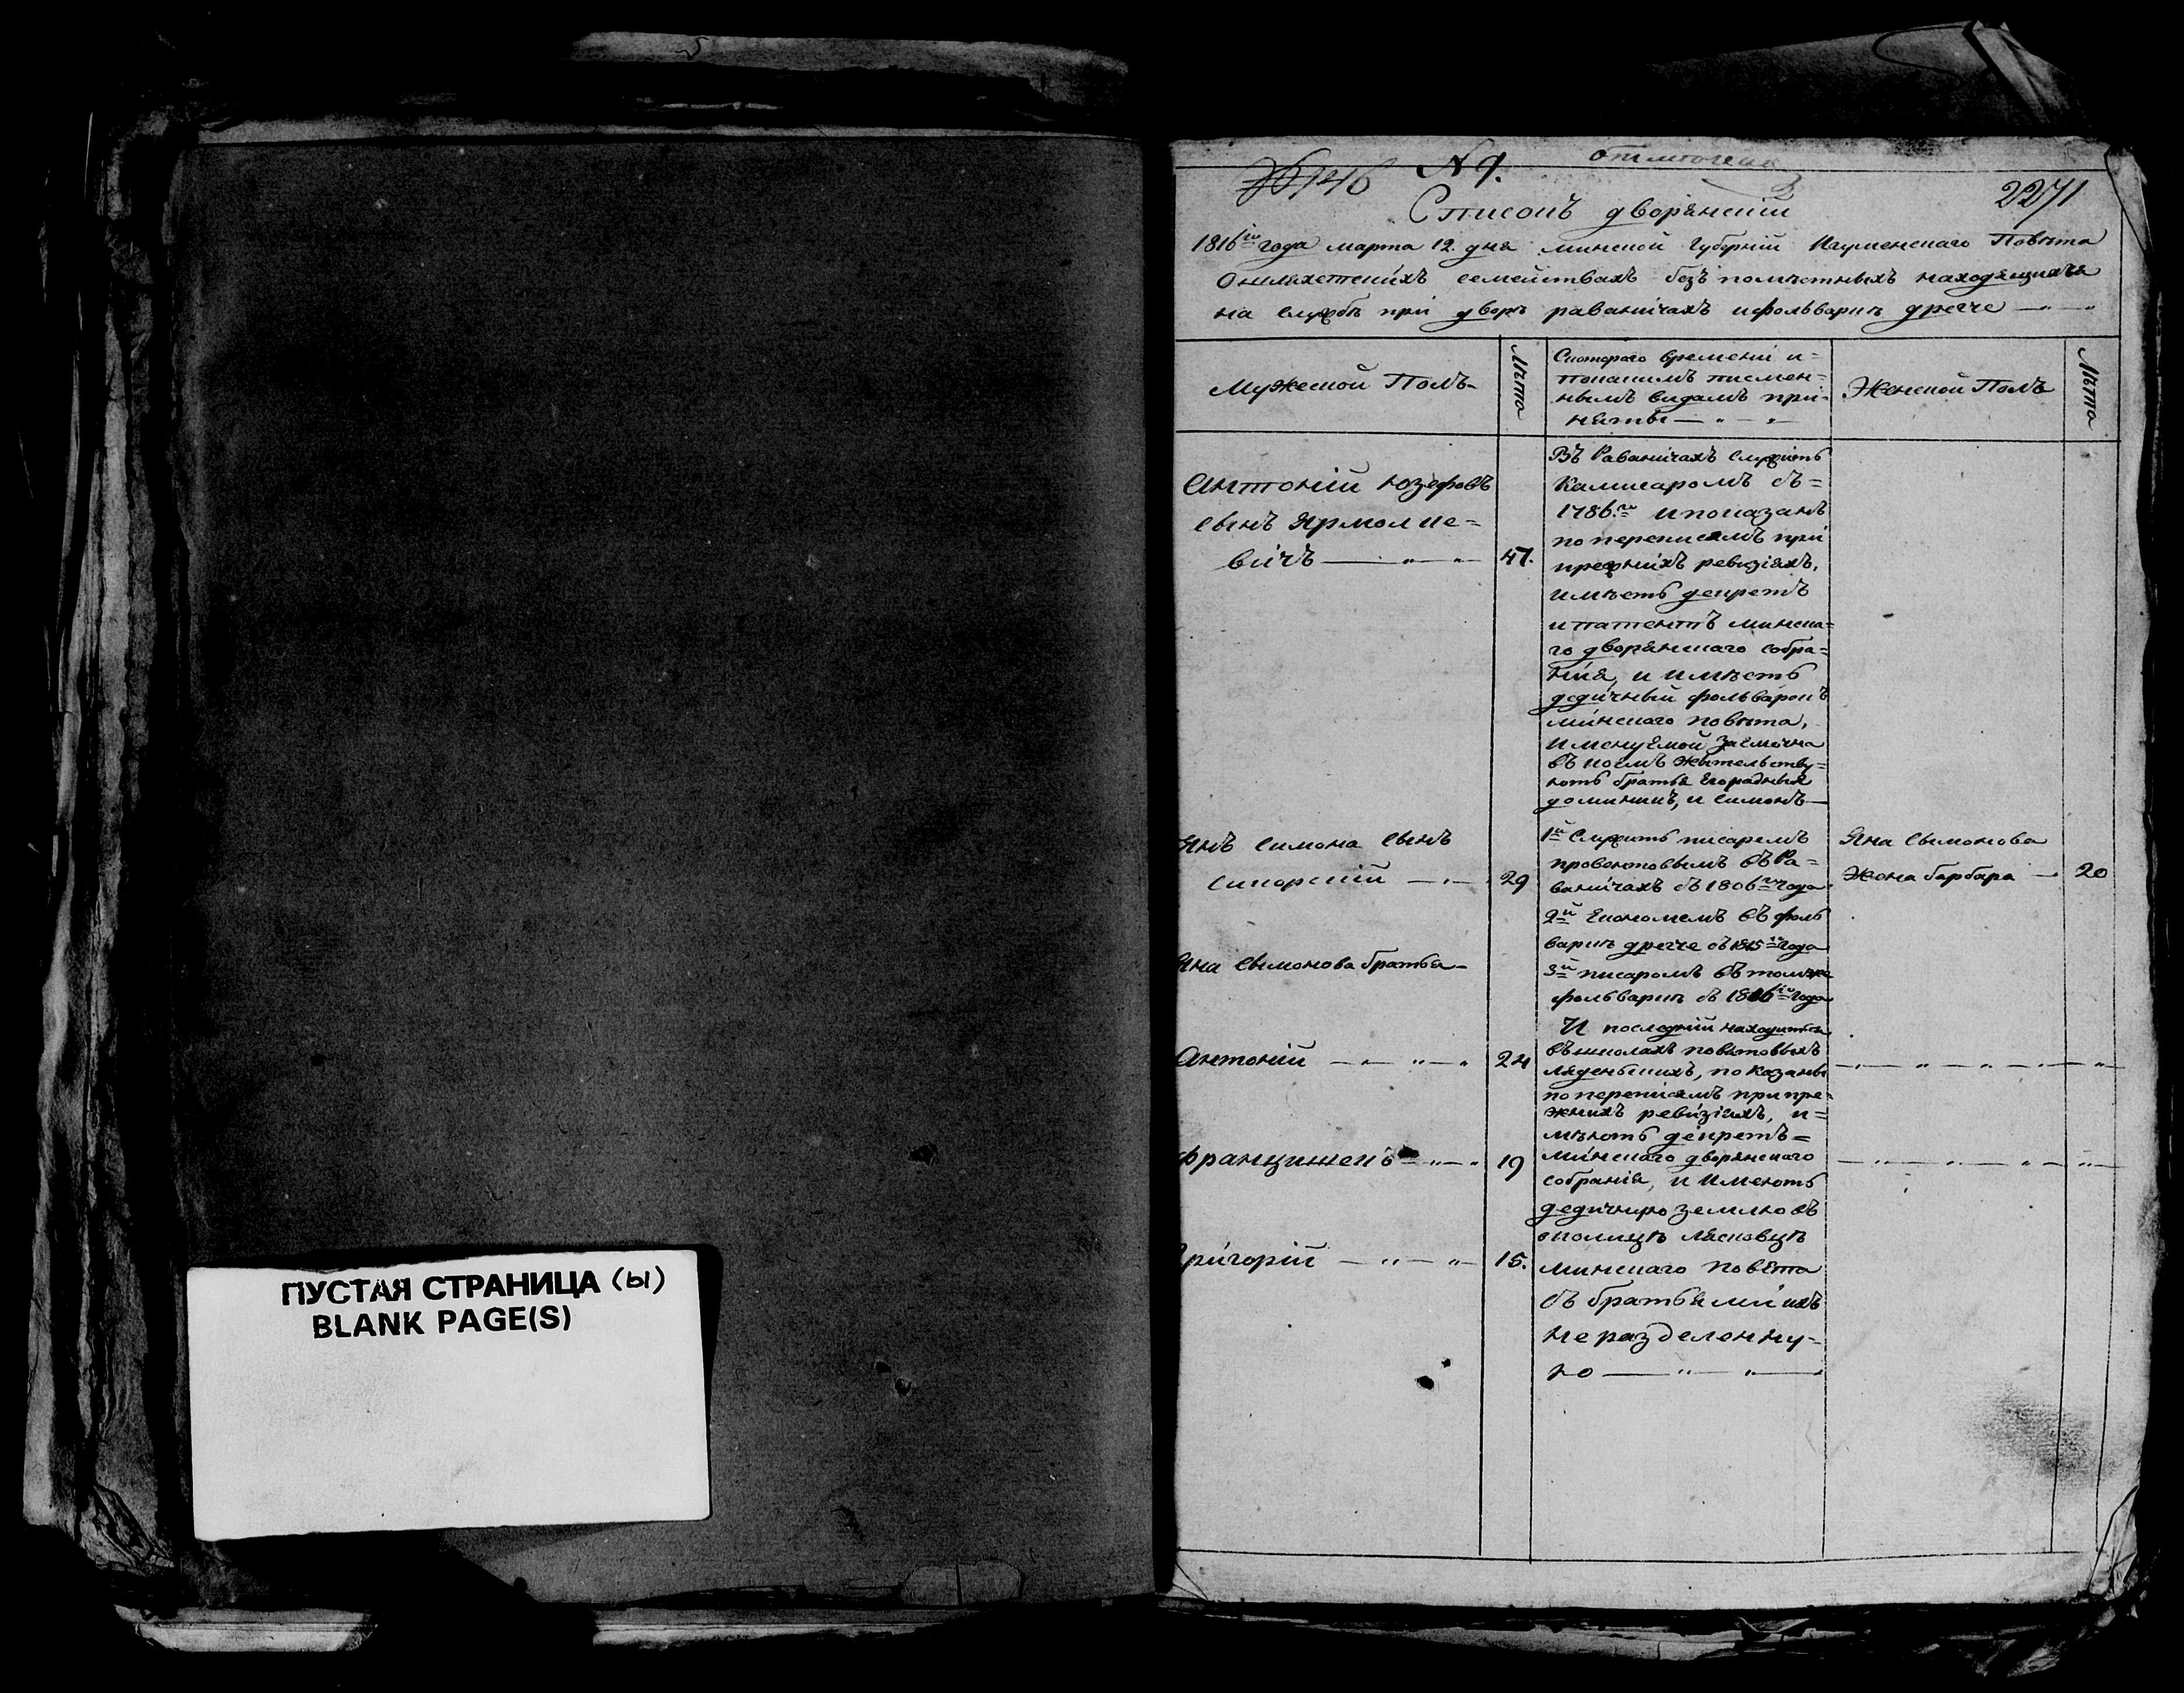 ПУСТАЯ СТРАНИЦА (Ы)
BLANK PAGE(S)
146 № 9.
2271
Списокъ дворянскiй
1816го года марта 12. дня минской Губернiй Игуменскаго Повѣта
О шляхетскихъ семействахъ безъ помѣстныхъ находящихся
на службѣ прi дворѣ раванiчахъ ифольваркѣ дрегче
Мужеской Полъ
Лѣта
Скотораго Временi и=
покакимъ писмен=
нымъ видамъ при=
няты
Женской Полъ
Лѣта
Антонiй Юзефовъ
сынъ Ярмолке=
вичъ 47.
Въ Раванiчахъ Служiтъ
Камисаромъ съ=
1786.го ипоказанъ
по переписямъ при
прежнiхъ ревизiяхъ,
имѣетъ декретъ
ипатентъ минска=
го дворянскаго собра=
нiя, и имѣетъ
дедичный фольварокъ
минскаго повѣта,
Именуемой Заемка
въ коемъ жительству=
ютъ братья Егорадныя
доминикъ, и Симонъ
Янъ Симона Сынъ
Сикорскiй 29
1й Служитъ писаремъ
провентовымъ въ Ра=
ванiчахъ съ 1806го года
Яна Сымонова
Жена барбара 20
2й Економомъ въ фоль
варкѣ дрегче съ 1815го года
Яна Сымонова братья
3й писаромъ въ томже
фольваркѣ съ 1816го года
И последнiй находится
въ школахъ повѣтовыхъ
Антонiй 24
ляденскихъ, показаны
по перепiсямъ при пре=
жнихъ ревизiяхъ, и=
мѣютъ декретъ=
Францишекъ 19
минскаго дворянскаго
собранiя, и Имеютъ
дедичную землю въ
околицѣ Лясковцѣ
Григорiй 15.
минскаго повѣта
съ братьями ихъ
не разделенну=
ю